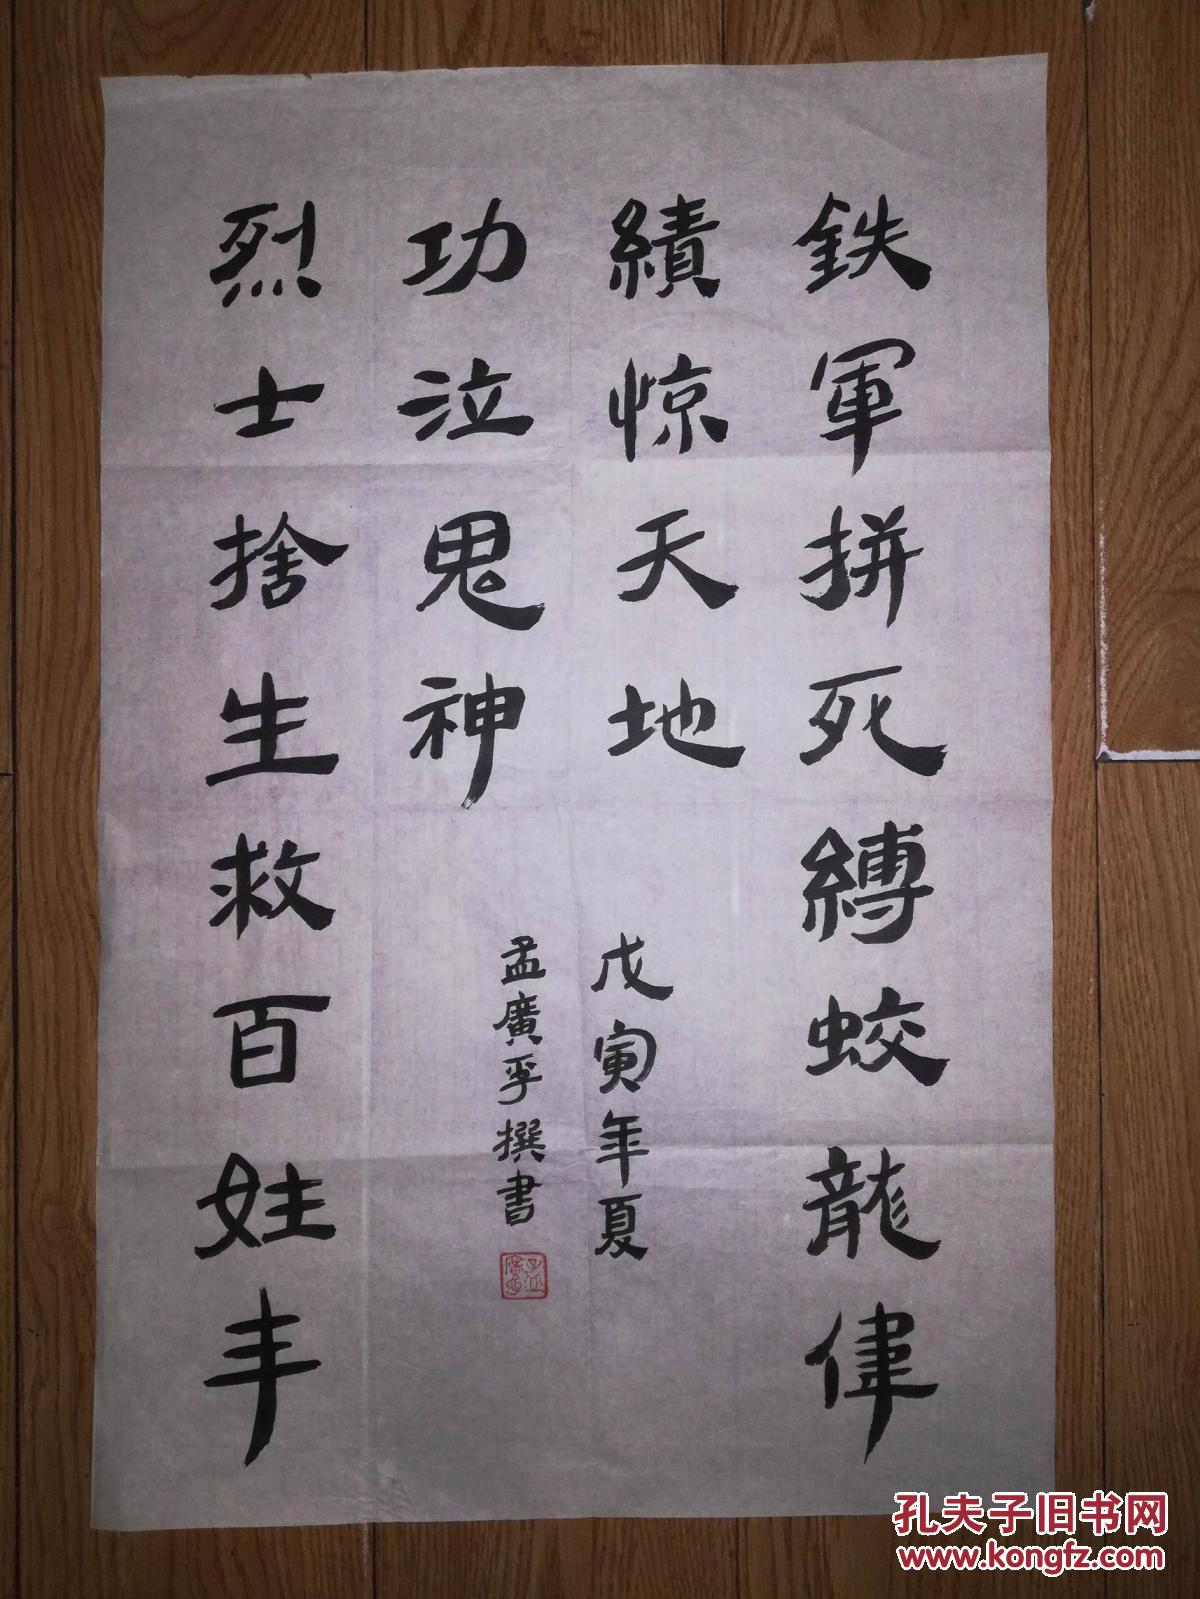 鉄軍拼死縛蛟龍偉
績惊天地
烈士捨生救百姓丰
功泣鬼神
戊寅年夏
孟廣撰書
孔夫子旧书网
www.kongfz.com